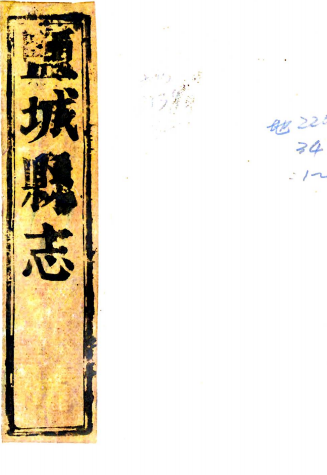 鹽城縣志
地 225
34
:1~